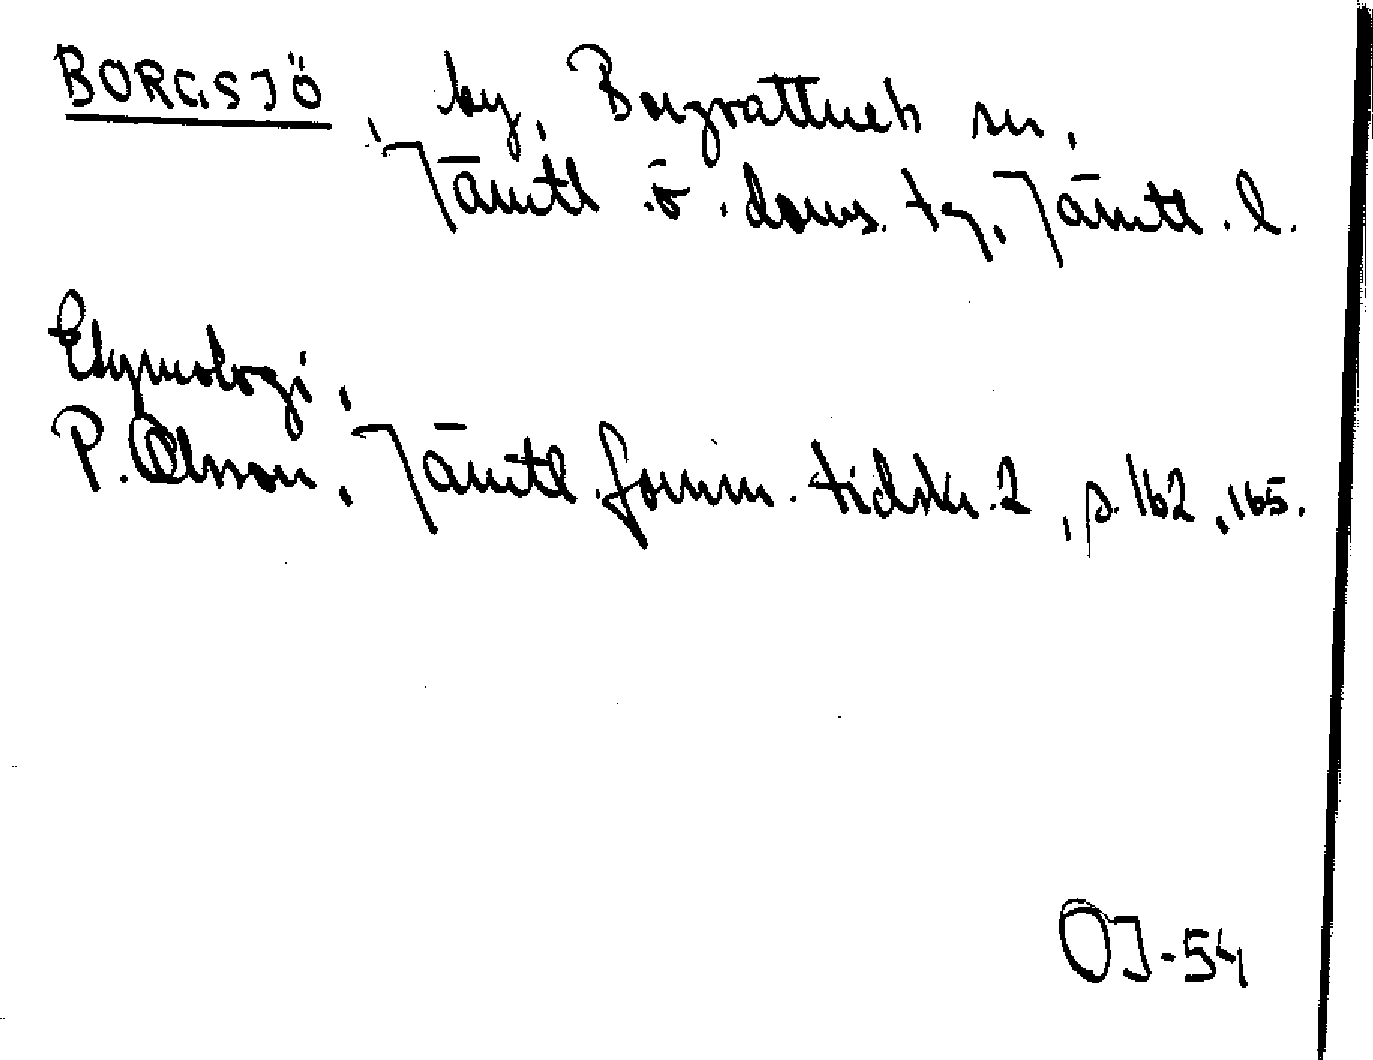 BORGSJÖ, by, Borgvattnets sn,
Jämtl. ö. doms. tg, Jämtl. l.
Etymologi,
P. Olsson, Jämtl. fornm. tidskr. 2, s. 162, 165.
OJ-54